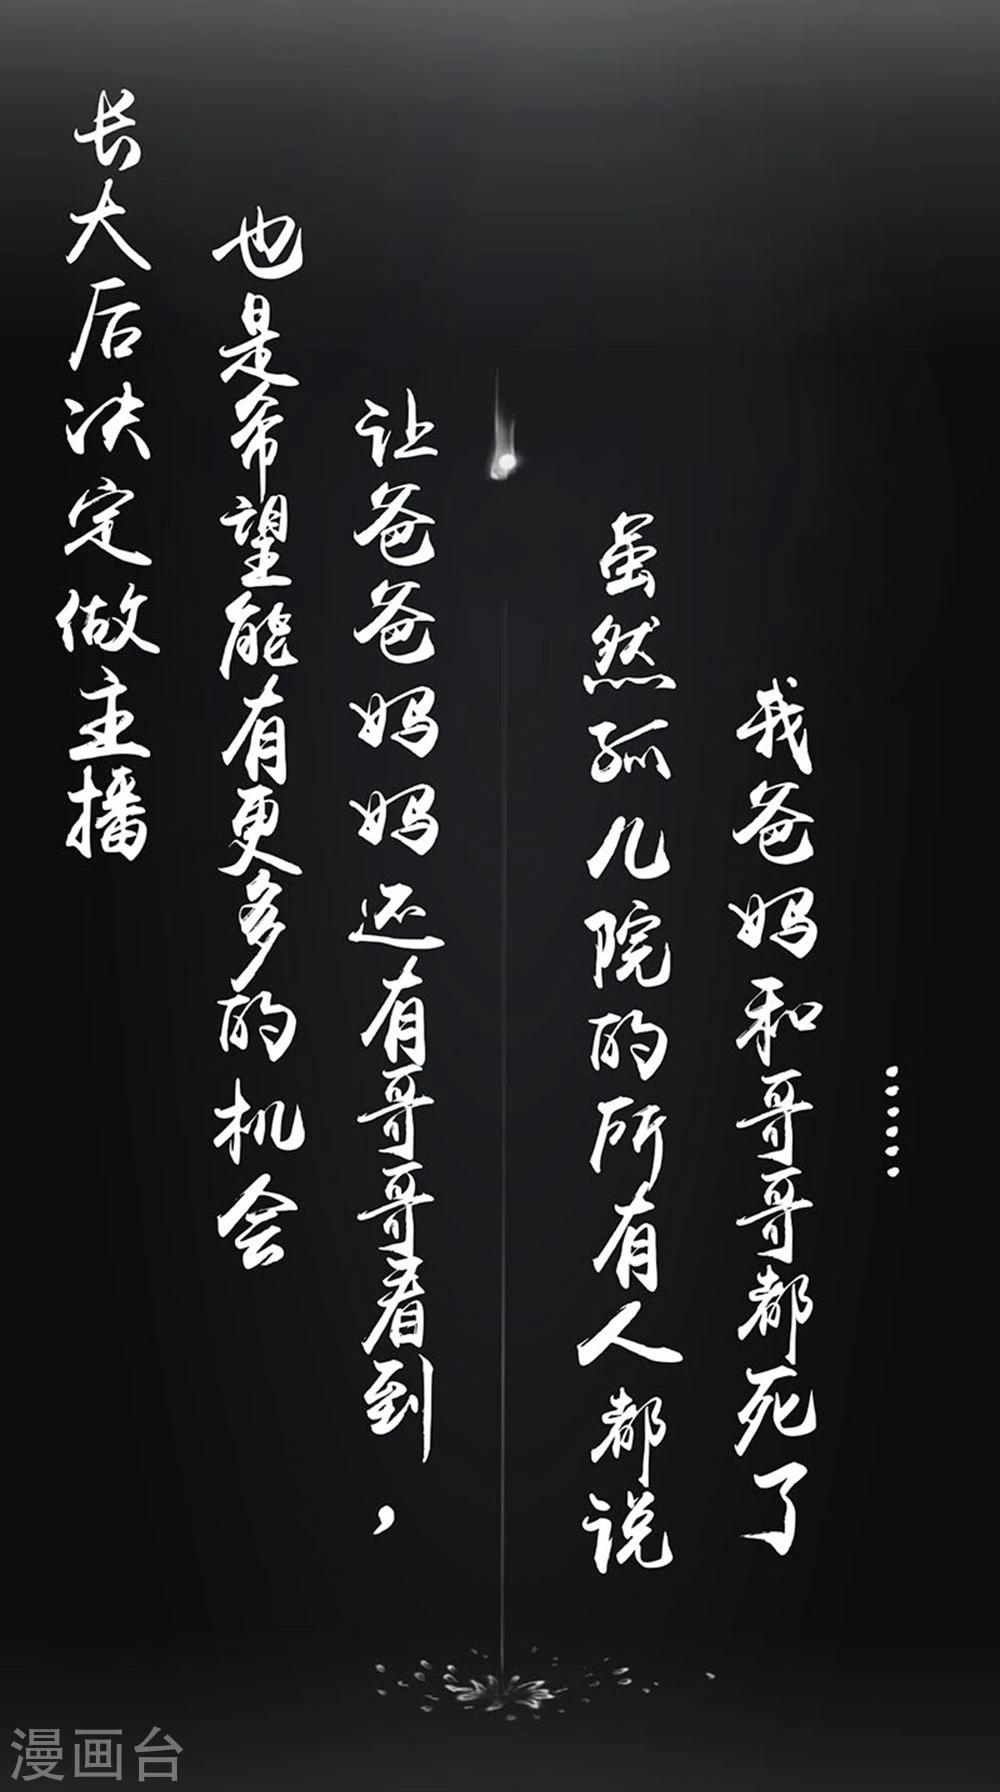 长大后决定做主播
也是希望能有更多的机会
让爸爸妈妈还有哥哥看到，
虽然孤儿院的所有人都说
我爸妈和哥哥都死了
……
漫画台